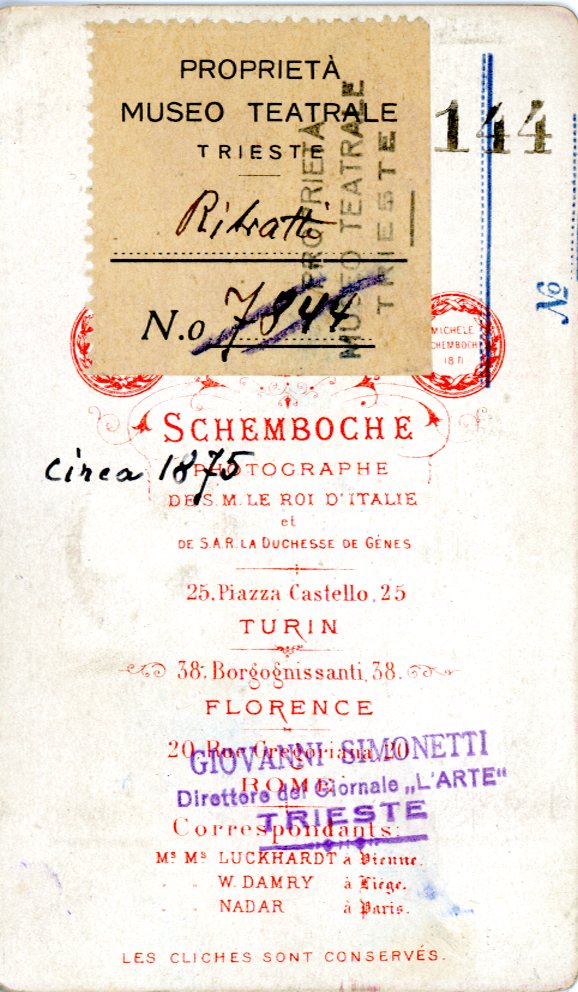 PROPRIETÀ
MUSEO TEATRALE
TRIESTE
Ritratti
N.o 7844
PROPRIETÀ
MUSEO TEATRALE
TRIESTE
144
No
MICHELE
SCHEMBOCHE
SCHEMBOCHE
circa 1875
PHOTOGRAPHE
DE S.M. LE ROI D'ITALIE
et
DE S.A.R. LA DUCHESSE DE GÊNES
25, Piazza Castello, 25
TURIN
38, Borgognissanti, 38.
FLORENCE
20 Rue Gregoriana, 20
ROME
GIOVANNI SIMONETTI
Direttore del Giornale „L'ARTE"
TRIESTE
Correspondants:
Ms Ms LUCKHARDT à Vienne.
" " W. DAMRY à Liége.
" " NADAR à Paris.
LES CLICHES SONT CONSERVÉS.